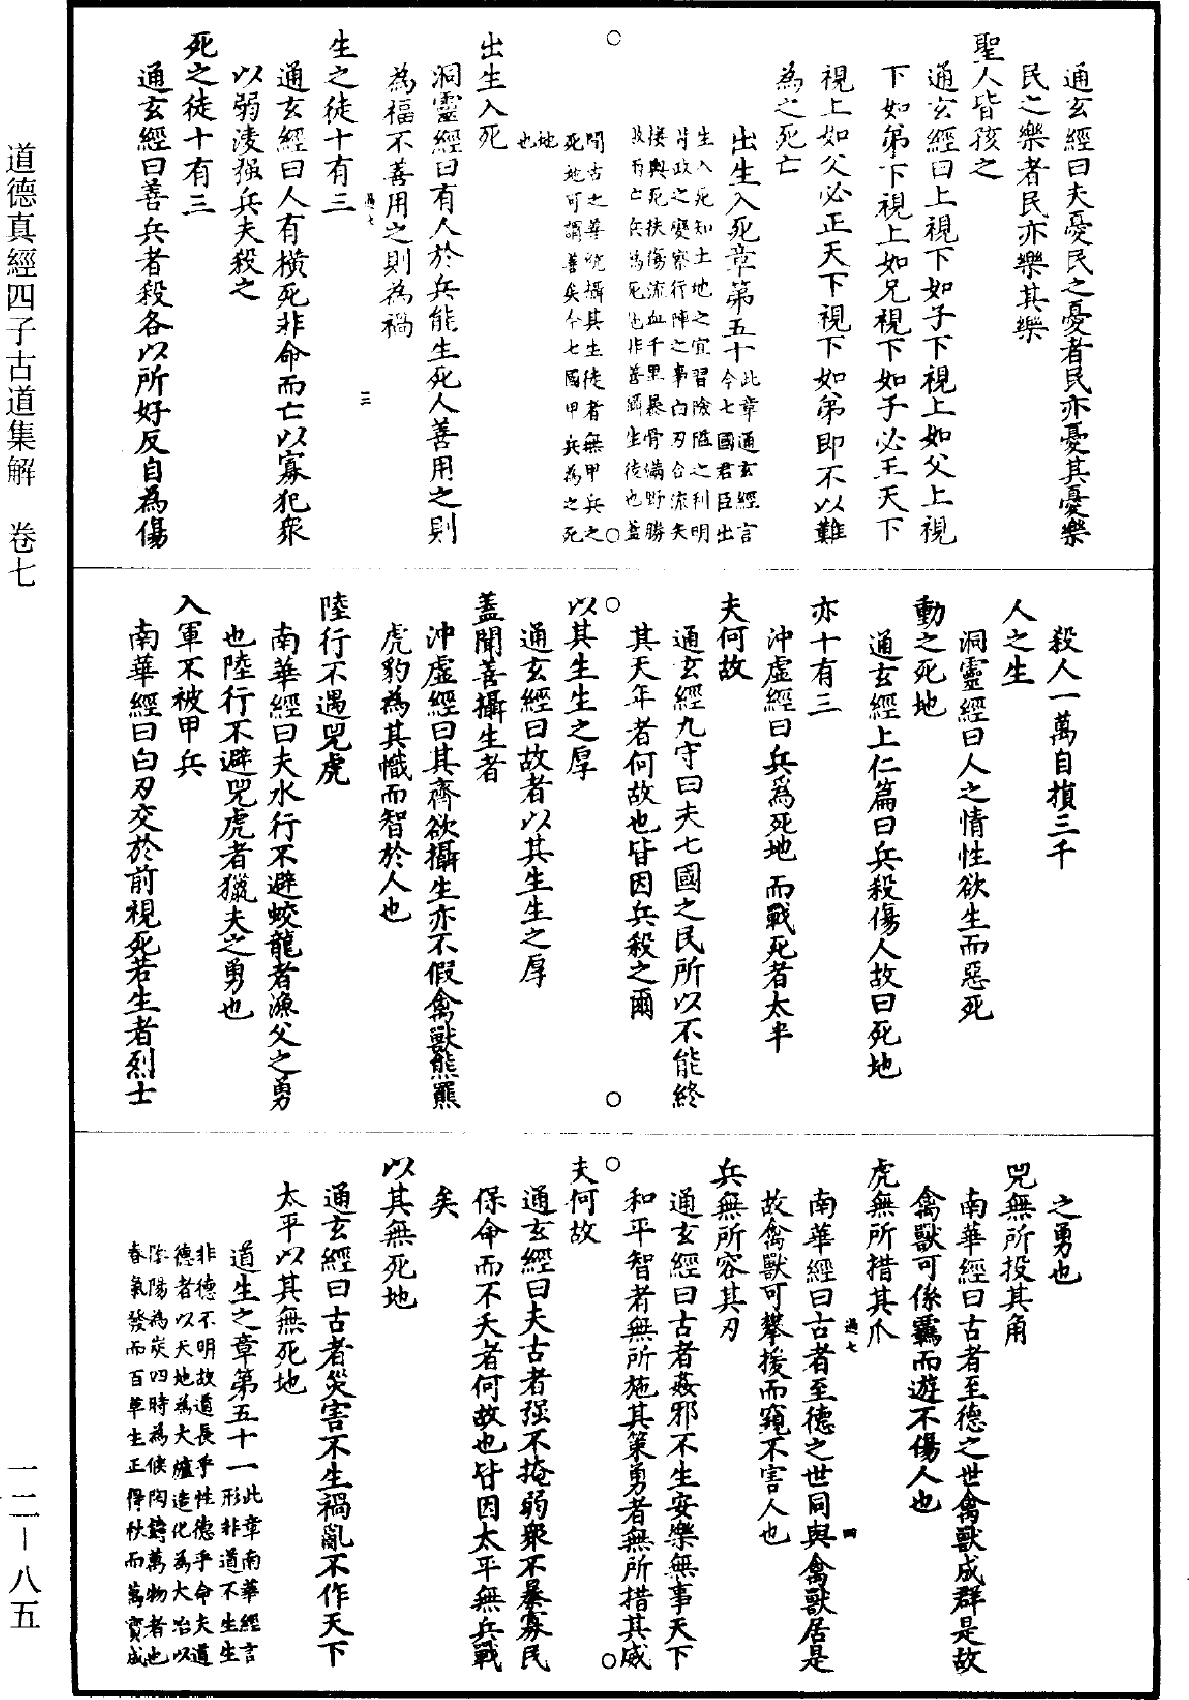 道德真經四子古道集解　卷七
一二—八五
通玄經曰夫憂民之憂者民亦憂其憂樂
民之樂者民亦樂其樂
聖人皆孩之
通玄經曰上視下如子下視上如父上視
下如弟下視上如兄視下如子必王天下
視上如父必正天下視下如弟即不以難
為之死亡
出生入死章第五十
此章通玄經言
今七國君臣出
生入死知土地之宜習險隘之利明
苛政之變察行陣之事白刃合流矢
接輿死扶傷流血千里暴骨滿野勝
敗而亡兵為死地非善攝生徒也蓋
聞古之善咣攝其生徒者無甲兵之
死地可謂善矣今七國甲兵為之死
地
也
出生入死
洞靈經曰有人於兵能生死人善用之則
為福不善用之則為禍
生之徒十有三
過七
三
通玄經曰人有橫死非命而亡以寡犯衆
以弱淩强兵夫殺之
死之徒十有三
通玄經曰善兵者殺各以所好反自為傷
殺人一萬自損三千
人之生
洞靈經曰人之情性欲生而惡死
動之死地
通玄經上仁篇曰兵殺傷人故曰死地
亦十有三
沖虛經曰兵爲死地而戰死者太半
夫何故
通玄經九守曰夫七國之民所以不能終
其天年者何故也皆因兵殺之爾
以其生生之厚
通玄經曰故者以其生生之厚
蓋聞善攝生者
沖虛經曰其齊欲攝生亦不假禽獸熊羆
虎豹為其幟而智於人也
陸行不遇兕虎
南華經曰夫水行不避蛟龍者漁父之勇
也陸行不避兕虎者獵夫之勇也
入軍不被甲兵
南華經曰白刃交於前視死若生者烈士
之勇也
兕無所投其角
南華經曰古者至德之世禽獸成群是故
禽獸可係羈而遊不傷人也
虎無所措其爪
過七
四
南華經曰古者至德之世同與禽獸居是
故禽獸可攀援而窺不害人也
兵無所容其刃
通玄經曰古者姦邪不生安樂無事天下
和平智者無所施其策勇者無所措其威
夫何故
通玄經曰夫古者强不掩弱衆不暴寡民
保命而不夭者何故也皆因太平無兵戰
矣
以其無死地
通玄經曰古者災害不生禍亂不作天下
太平以其無死地
道生之章第五十一
此章南華經言
形非道不生生
非德不明故道長乎性德乎命夫道
德者以天地為大爐造化為大冶以
陰陽為炭四時為候陶鑄萬物者也
春氣發而百草生正得秋而萬寶成